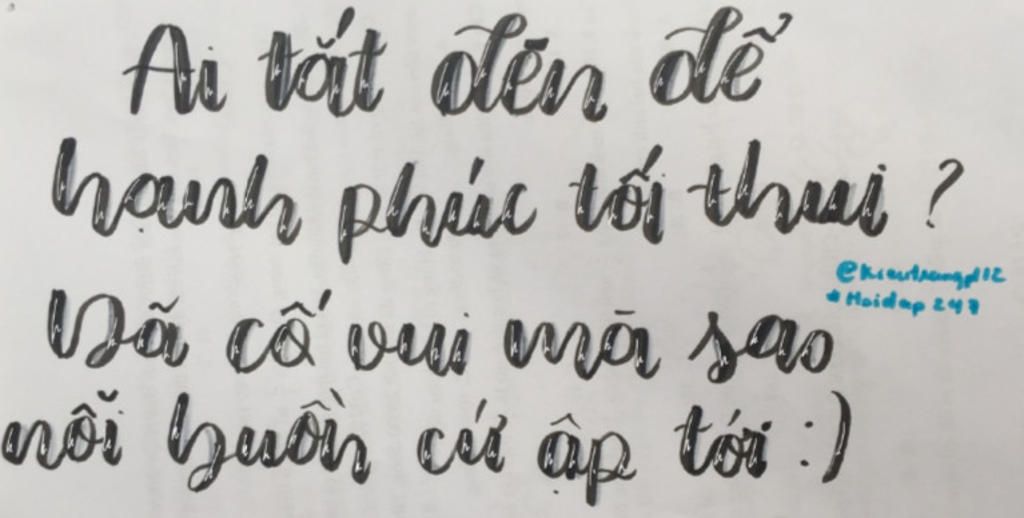 Ai tắt đèn để
hạnh phúc tối thui ?
Đã cố vui mà sao
@kieutrangpl12
#Hoidap247
nỗi buồn cứ ập tới :)